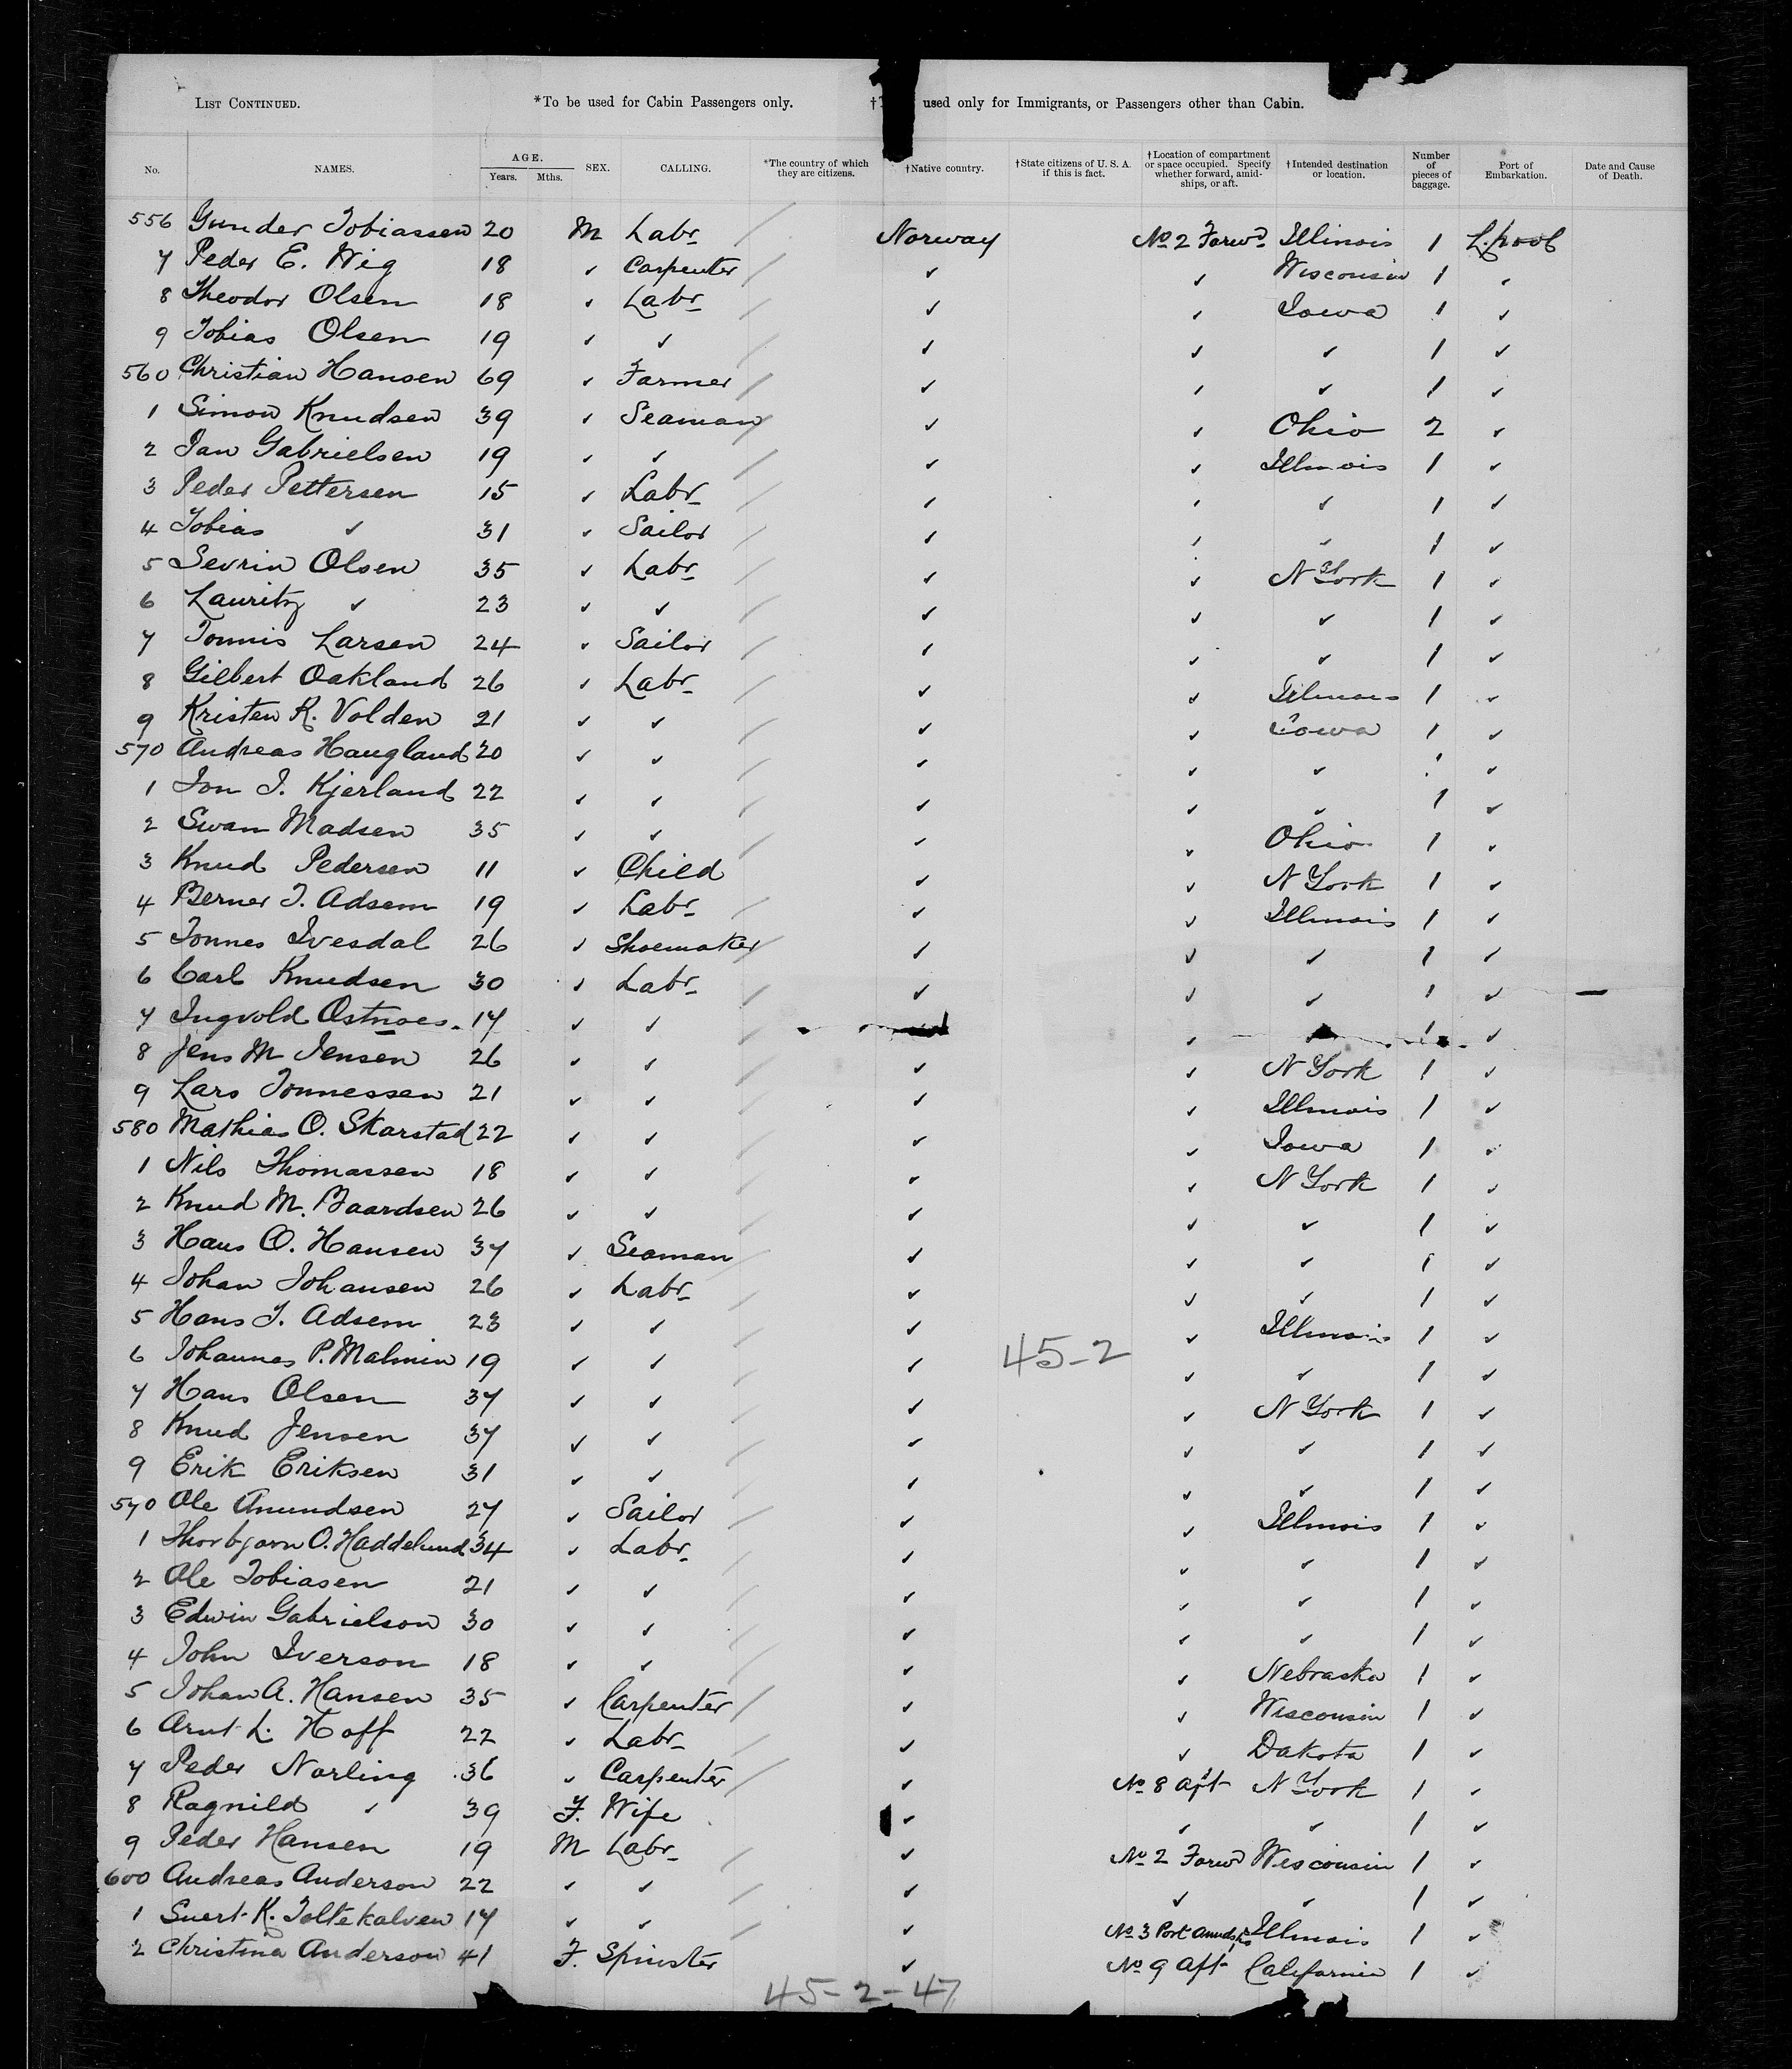 LIST CONTINUED. *To be used for Cabin Passengers only. † used only for Immigrants, or Passengers other than Cabin.
No. NAMES. AGE. Years. Mths. SEX. CALLING. *The country of which they are citizens. †Native country. †State citizens of U. S. A. if this is fact. †Location of compartment or space occupied. Specify whether forward, amid-ships, or aft. †Intended destination or location. Number of pieces of baggage. Port of Embarkation. Date and Cause of Death.
556 Gunder Tobiassen 20 M Labr Norway No 2 Forwd Illinois 1 L.pool
7 Peder E. Wig 18 ✓ Carpenter ✓ ✓ Wisconsin 1 ✓
8 Theodor Olsen 18 ✓ Labr ✓ ✓ Iowa 1 ✓
9 Tobias Olsen 19 ✓ ✓ ✓ ✓ ✓ 1 ✓
560 Christian Hansen 69 ✓ Farmer ✓ ✓ ✓ 1 ✓
1 Simon Knudsen 39 ✓ Seaman ✓ ✓ Ohio 2 ✓
2 Jan Gabrielsen 19 ✓ ✓ ✓ ✓ Illinois 1 ✓
3 Peder Pettersen 15 ✓ Labr ✓ ✓ ✓ 1 ✓
4 Tobias ✓ 31 ✓ Sailor ✓ ✓ ✓ 1 ✓
5 Sevrin Olsen 35 ✓ Labr ✓ ✓ N York 1 ✓
6 Lauritz ✓ 23 ✓ ✓ ✓ ✓ ✓ 1 ✓
7 Tonnis Larsen 24 ✓ Sailor ✓ ✓ ✓ 1 ✓
8 Gilbert Oakland 26 ✓ Labr ✓ ✓ Illinois 1 ✓
9 Kristen R. Volden 21 ✓ ✓ ✓ ✓ Iowa 1 ✓
570 Andreas Haugland 20 ✓ ✓ ✓ ✓ ✓ 1 ✓
1 Jon J. Kjerland 22 ✓ ✓ ✓ ✓ ✓ 1 ✓
2 Swan Madsen 35 ✓ ✓ ✓ ✓ Ohio 1 ✓
3 Knud Pedersen 11 ✓ Child ✓ ✓ N York 1 ✓
4 Berner T. Adsem 19 ✓ Labr ✓ ✓ Illinois 1 ✓
5 Tonnes Ivesdal 26 ✓ Shoemaker ✓ ✓ ✓ 1 ✓
6 Carl Knudsen 30 ✓ Labr ✓ ✓ ✓ 1 ✓
7 Ingvold Ostnoes 17 ✓ ✓ ✓ ✓ 1 ✓
8 Jens M Jensen 26 ✓ ✓ ✓ ✓ N York 1 ✓
9 Lars Tonnessen 21 ✓ ✓ ✓ ✓ Illinois 1 ✓
580 Mathias O. Skarstad 22 ✓ ✓ ✓ ✓ Iowa 1 ✓
1 Nils Thomassen 18 ✓ ✓ ✓ ✓ N York 1 ✓
2 Knud M. Baardsen 26 ✓ ✓ ✓ ✓ ✓ 1 ✓
3 Hans O. Hansen 37 ✓ Seaman ✓ ✓ ✓ 1 ✓
4 Johan Johansen 26 ✓ Labr ✓ ✓ ✓ 1 ✓
5 Hans T. Adsem 23 ✓ ✓ ✓ ✓ Illinois 1 ✓
6 Johannes P. Malmin 19 ✓ ✓ ✓ 45-2 ✓ ✓ 1 ✓
7 Hans Olsen 37 ✓ ✓ ✓ ✓ N York 1 ✓
8 Knud Jensen 37 ✓ ✓ ✓ ✓ ✓ 1 ✓
9 Erik Eriksen 31 ✓ ✓ ✓ ✓ ✓ 1 ✓
570 Ole Amundsen 27 ✓ Sailor ✓ ✓ Illinois 1 ✓
1 Thorbjorn O. Haddelund 34 ✓ Labr ✓ ✓ ✓ 1 ✓
2 Ole Tobiasen 21 ✓ ✓ ✓ ✓ ✓ 1 ✓
3 Edwin Gabrielson 30 ✓ ✓ ✓ ✓ ✓ 1 ✓
4 John Iverson 18 ✓ ✓ ✓ ✓ Nebraska 1 ✓
5 Johan A. Hansen 35 ✓ Carpenter ✓ ✓ Wisconsin 1 ✓
6 Arnt L. Hoff 22 ✓ Labr ✓ ✓ Dakota 1 ✓
7 Peder Norling 36 ✓ Carpenter ✓ No 8 aft N York 1 ✓
8 Ragnild ✓ 39 F. Wife ✓ ✓ ✓ 1 ✓
9 Peder Hansen 19 M Labr ✓ No 2 Forwd Wisconsin 1 ✓
600 Andreas Anderson 22 ✓ ✓ ✓ ✓ ✓ 1 ✓
1 K. 17 ✓ ✓ ✓ No 3 Port Illinois 1 ✓
2 Christina Anderson 41 F. Spinster ✓ No 9 aft California 1 ✓
45-2-47